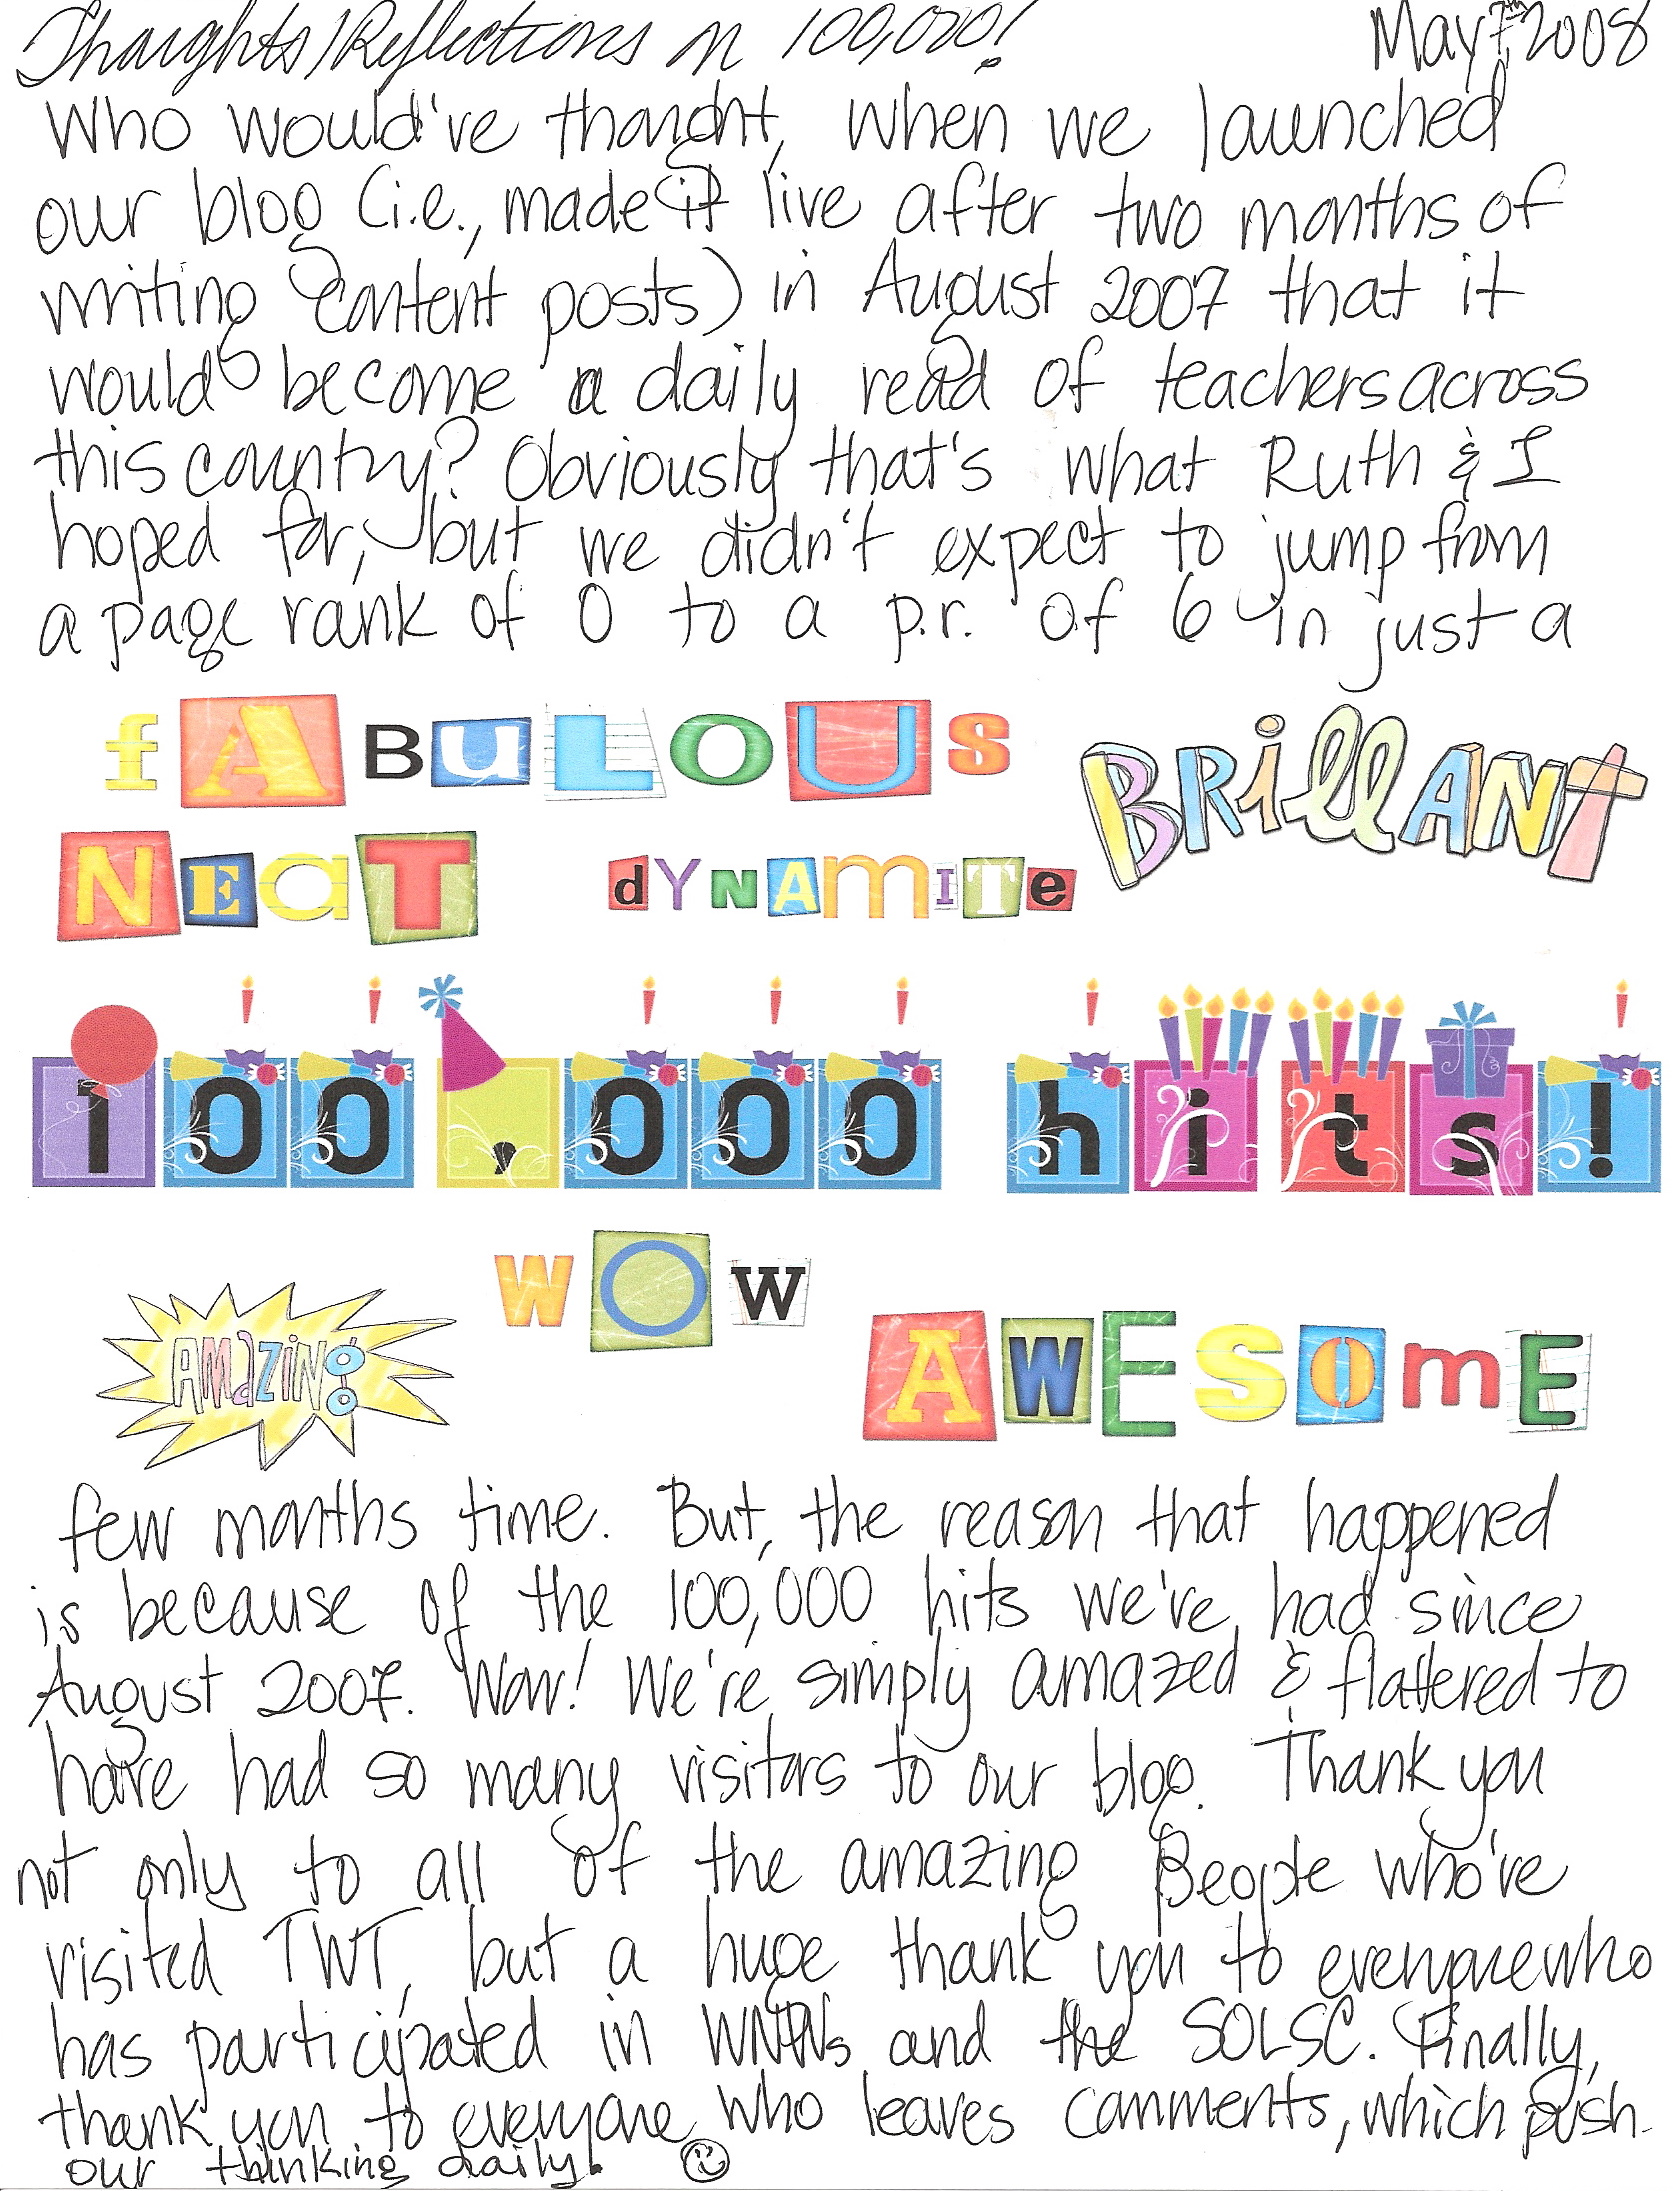 Thoughts/Reflections on 100,000! May 7th, 2008
Who would've thought, when we launched
our blog (i.e., made it live after two months of
writing content posts) in August 2007 that it
would become a daily read of teachers across
this country? Obviously that's what Ruth & I
hoped for, but we didn't expect to jump from
a page rank of 0 to a p.r. of 6 in just a
fABULOUS BRillANT
NEaT dYNAmITe
100,000 hits!
WOW
AMaZiNg AWESOmE
few months time. But, the reason that happened
is because of the 100,000 hits we've had since
August 2007. Wow! We're simply amazed & flattered to
have had so many visitors to our blog. Thank you
not only to all of the amazing people who've
visited TWT, but a huge thank you to everyone who
has participated in and the SOLSC. Finally,
thank you to everyone who leaves comments, which push
our thinking daily.